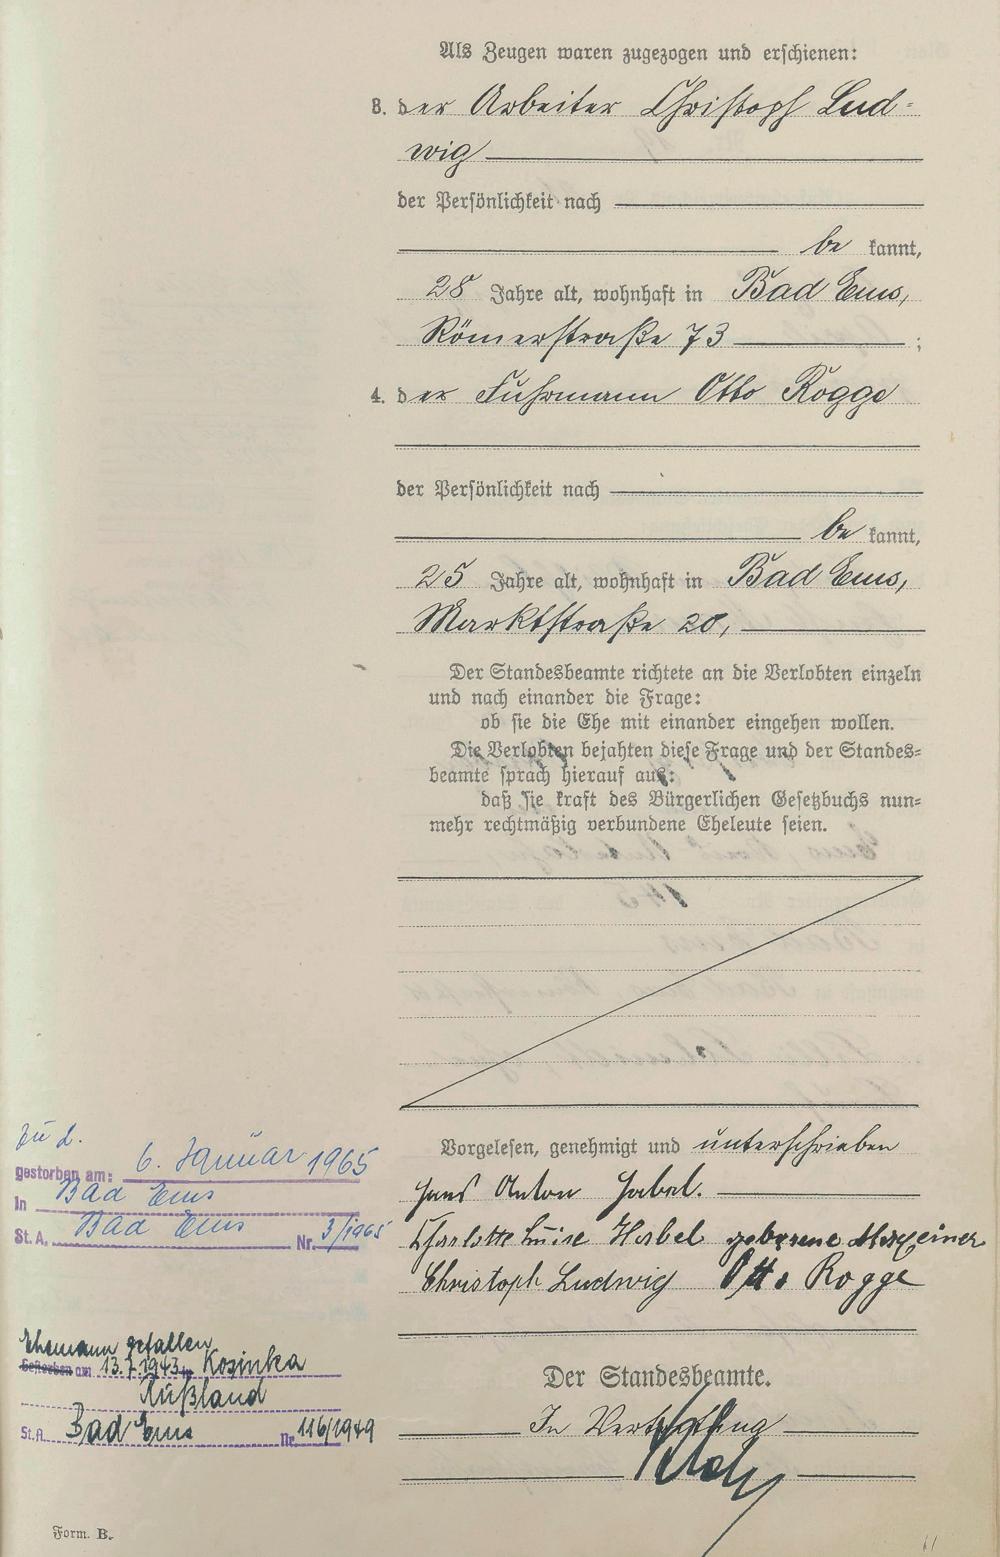 Als Zeugen waren zugezogen und erschienen:
3. der Arbeiter Christoph Lud=
wig
der Persönlichkeit nach
be kannt,
28 Jahre alt, wohnhaft in Bad Ems,
Römerstraße 73 ;
4. der Fuhrmann Otto Rogge
der Persönlichkeit nach
be kannt,
25 Jahre alt, wohnhaft in Bad Ems,
Marktstraße 20,
Der Standesbeamte richtete an die Verlobten einzeln
und nach einander die Frage:
ob sie die Ehe mit einander eingehen wollen.
Die Verlobten bejahten diese Frage und der Standes=
beamte sprach hierauf aus:
daß sie kraft des Bürgerlichen Gesetzbuchs nun=
mehr rechtmäßig verbundene Eheleute seien.
Vorgelesen, genehmigt und unterschrieben
Hans Anton Habel.
Charlotte Luise Habel geborene
Christoph Ludwig Otto Rogge
Der Standesbeamte.
In Vertretung
zu 2.
gestorben am: 6. Januar 1965
In Bad Ems
St. A. Bad Ems Nr. 3/1965
Ehemann gefallen
Gestorben am 13.7.1943 in Kosinka
Rußland
St. A. Bad Ems Nr. 116/1949
Form. B.